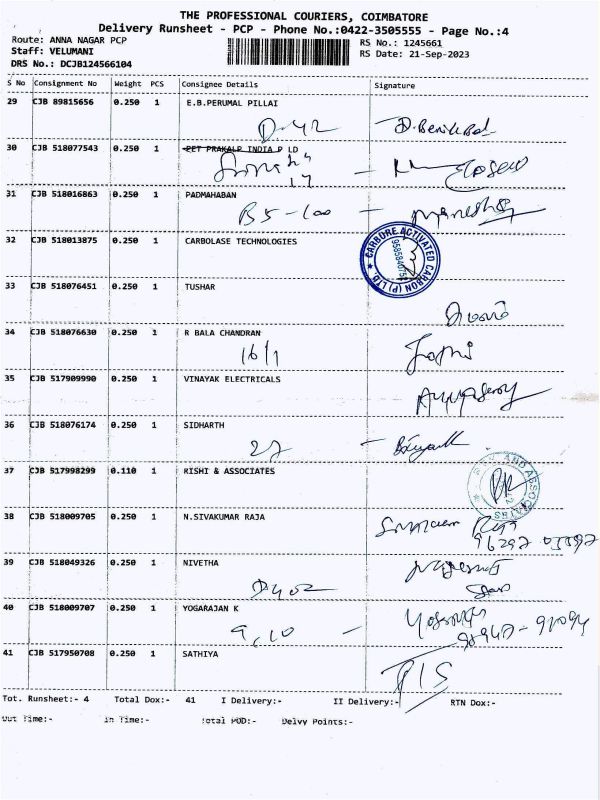 THE PROFESSIONAL COURIERS, COIMBATORE
Delivery Runsheet - PCP - Phone No.:0422-3505555 - Page No.:4
Route: ANNA NAGAR PCP RS No.: 1245661
Staff: VELUMANI RS Date: 21-Sep-2023
DRS No.: DCJB124566104
S No Consignment No Weight PCS Consignee Details Signature
29 CJB 89815656 0.250 1 E.B.PERUMAL PILLAI
D-42
30 CJB 518077543 0.250 1 PET PRAKALP INDIA P LD
17
31 CJB 518016863 0.250 1 PADMAHABAN
B5-100 -
32 CJB 518013875 0.250 1 CARBOLASE TECHNOLOGIES
CARBORE ACTIVATED CARBON (P) LTD.
33 CJB 518076451 0.250 1 TUSHAR
34 CJB 518076630 0.250 1 R BALA CHANDRAN
16/1
35 CJB 517909990 0.250 1 VINAYAK ELECTRICALS
36 CJB 518076174 0.250 1 SIDHARTH
27 -
37 CJB 517998299 0.110 1 RISHI & ASSOCIATES
AND ASSOCIATES
38 CJB 518009705 0.250 1 N.SIVAKUMAR RAJA
39 CJB 518049326 0.250 1 NIVETHA
D402
40 CJB 518009707 0.250 1 YOGARAJAN K
9,10 -
41 CJB 517950708 0.250 1 SATHIYA
Tot. Runsheet:- 4 Total Dox:- 41 I Delivery:- II Delivery:- RTN Dox:-
Out Time:- In Time:- Total POD:- Delvy Points:-